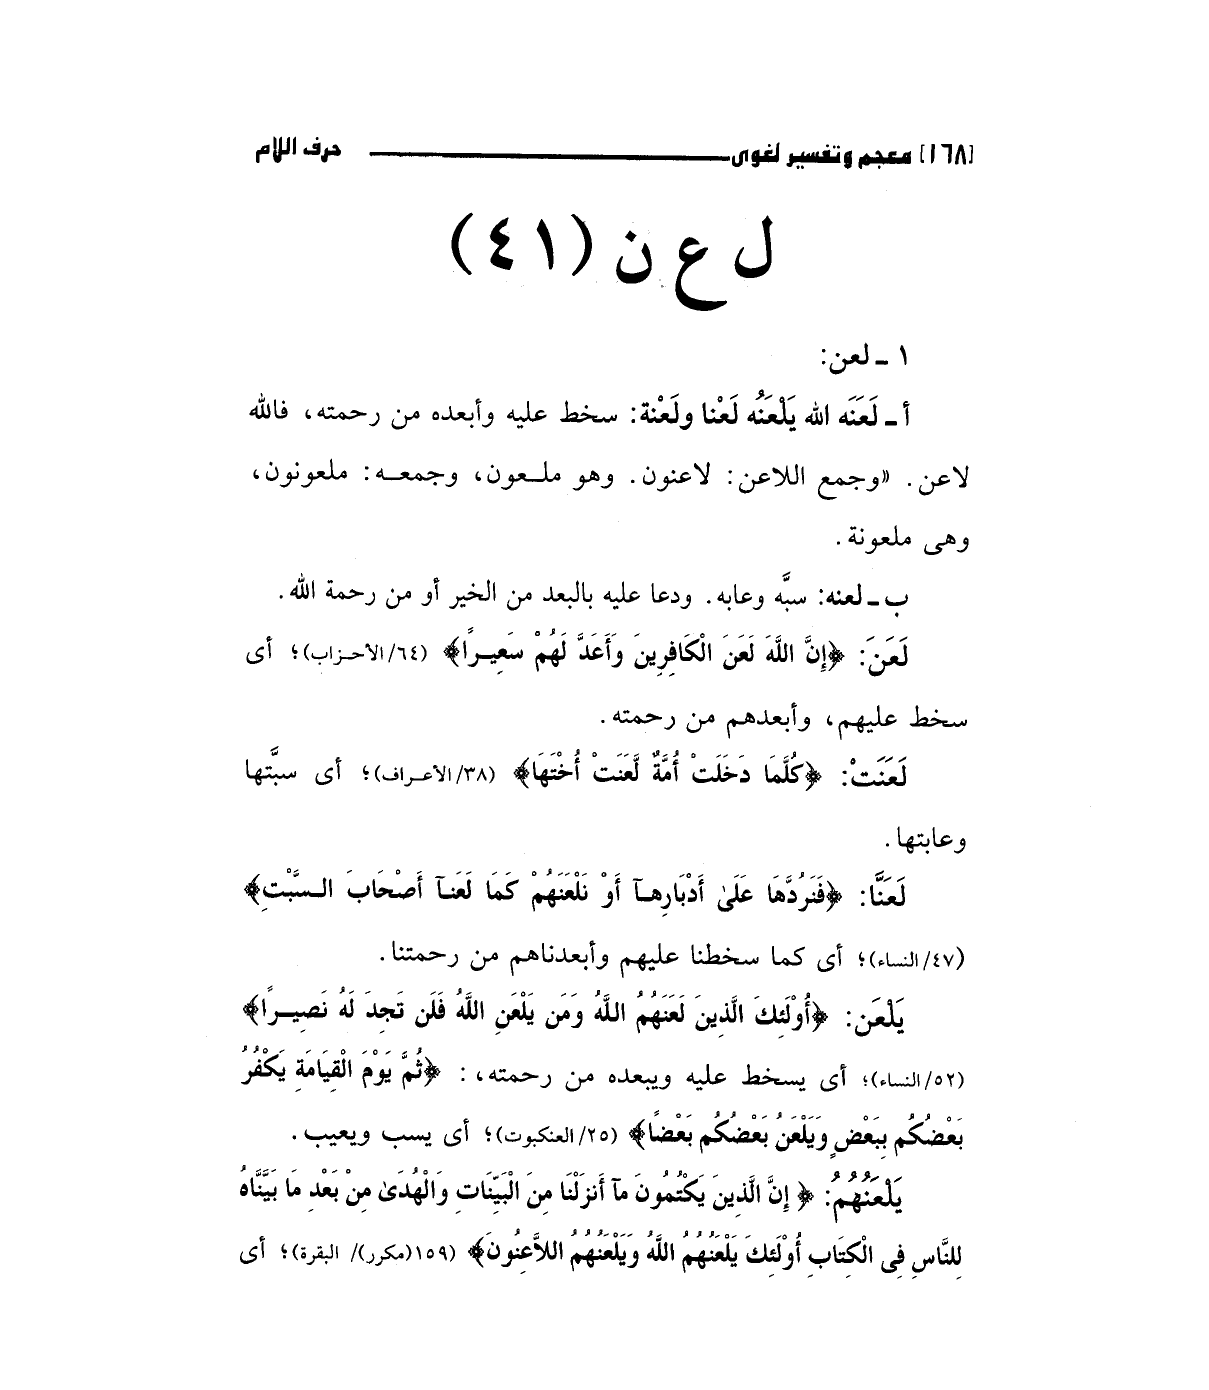 [١٦٨] معجم وتفسير لغوى حرف اللام
ل ع ن (٤١)
١ ـ لعن:
أ ـ لَعَنَه الله يَلْعَنُه لَعْنا ولَعْنة: سخط عليه وأبعده من رحمته، فالله
لاعن. «وجمع اللاعن: لاعنون. وهو ملعون، وجمعه: ملعونون،
وهى ملعونة.
ب ـ لعنه: سبَّه وعابه. ودعا عليه بالبعد من الخير أو من رحمة الله.
لَعَنَ: ﴿إِنَّ اللَّهَ لَعَنَ الْكَافِرِينَ وَأَعَدَّ لَهُمْ سَعِيرًا﴾ (٦٤/الأحزاب)؛ أى
سخط عليهم، وأبعدهم من رحمته.
لَعَنَتْ: ﴿كُلَّمَا دَخَلَتْ أُمَّةٌ لَّعَنَتْ أُخْتَهَا﴾ (٣٨/الأعراف)؛ أى سبَّتها
وعابتها.
لَعَنَّا: ﴿فَنَرُدَّهَا عَلَىٰ أَدْبَارِهآ أَوْ نَلْعَنَهُمْ كَمَا لَعَنآ أَصْحَابَ السَّبْتِ﴾
(٤٧/النساء)؛ أى كما سخطنا عليهم وأبعدناهم من رحمتنا.
يَلْعَن: ﴿أُوْلَئِكَ الَّذِينَ لَعَنَهُمُ اللَّهُ وَمَن يَلْعَنِ اللَّهُ فَلَن تَجِدَ لَهُ نَصِيرًا﴾
(٥٢/النساء)؛ أى يسخط عليه ويبعده من رحمته،: ﴿ثُمَّ يَوْمَ الْقِيَامَةِ يَكْفُرُ
بَعْضُكُم بِبَعْضٍ وَيَلْعَنُ بَعْضُكُم بَعْضًا﴾ (٢٥/العنكبوت)؛ أى يسب ويعيب.
يَلْعَنُهُمُ: ﴿إِنَّ الَّذِينَ يَكْتُمُونَ مآ أَنزَلْنَا مِنَ الْبَيِّنَاتِ وَالْهُدَىٰ مِنْ بَعْدِ مَا بَيَّنَّاهُ
لِلنَّاسِ فِى الْكِتَابِ أُوْلَئِكَ يَلْعَنُهُمُ اللَّهُ وَيَلْعَنُهُمُ اللاَّعِنُونَ﴾ (١٥٩(مكرر)/ البقرة)؛ أى